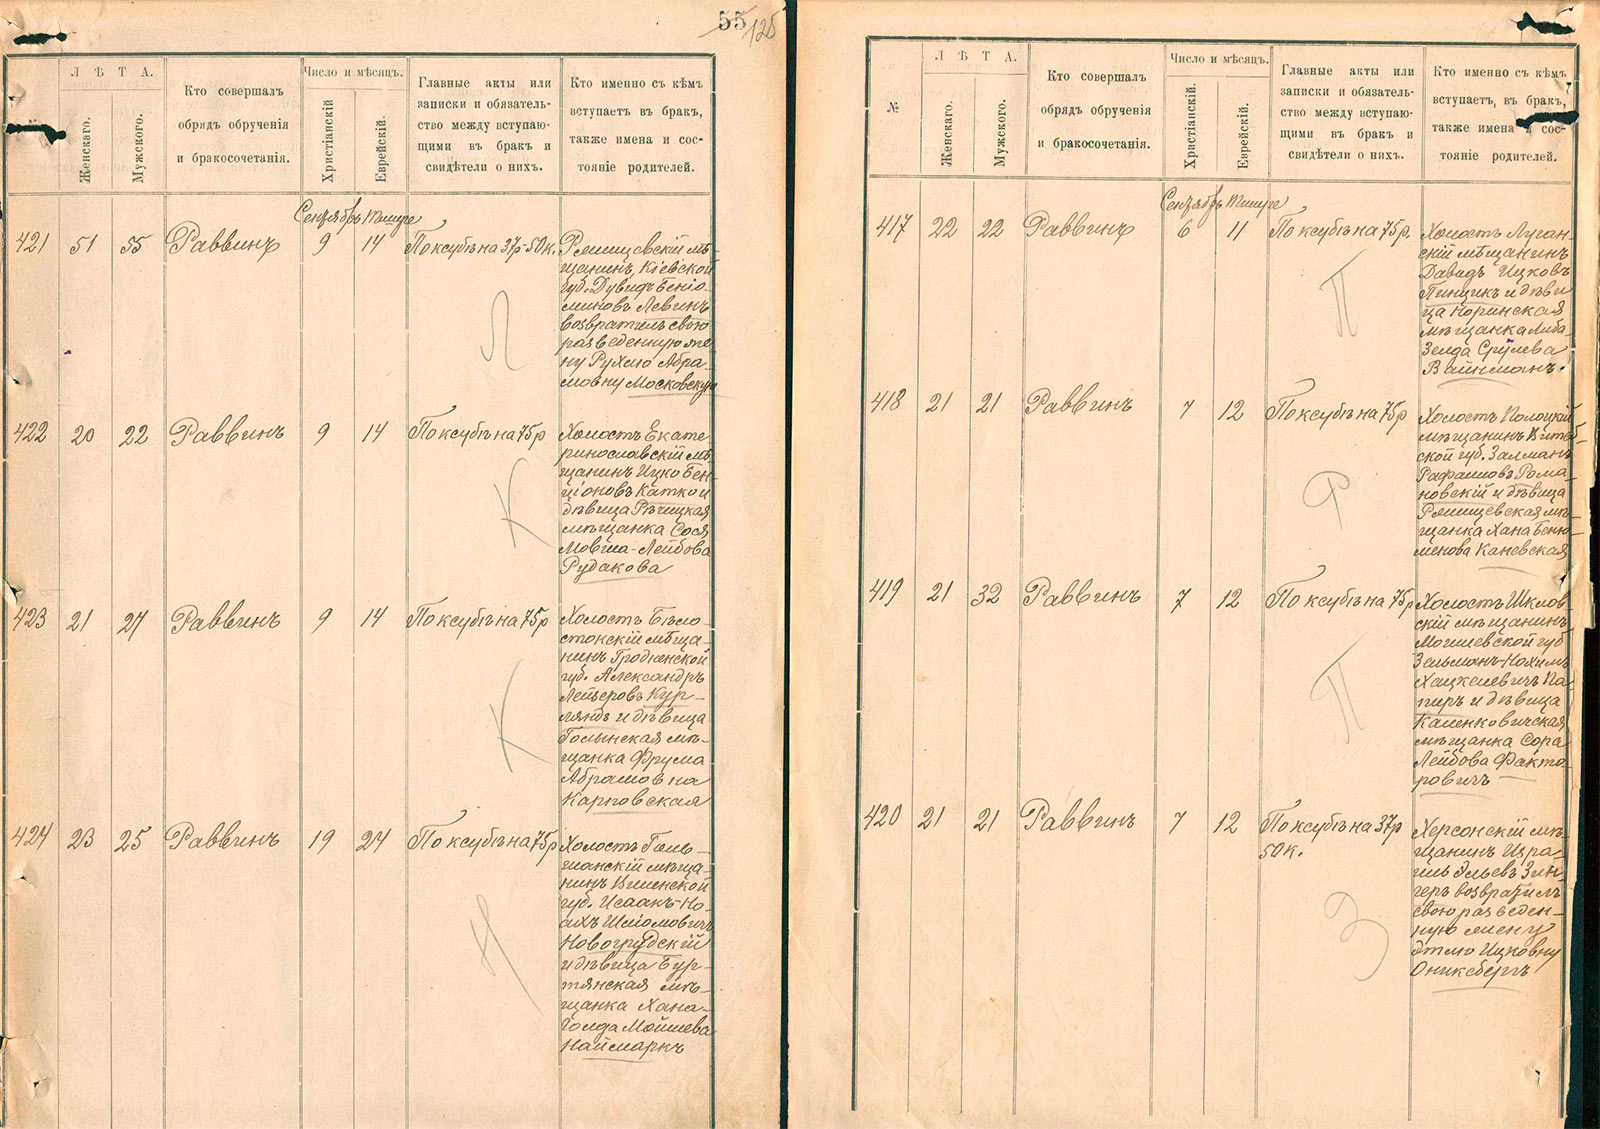 55
125
№
Л Ѣ Т А.
Женскаго.
Мужского.
Кто совершалъ
обрядъ обрученія
и бракосочетанія.
Число и мѣсяцъ.
Христіанскій
Еврейскій.
Главные акты или
записки и обязатель-
ство между вступаю-
щими въ бракъ и
свидѣтели о нихъ.
Кто именно съ кѣмъ
вступаетъ въ бракъ,
также имена и сос-
тояніе родителей.
Сентябрь Тишре
421 51 55 Раввинъ 9 14 По ксубѣ на 37р-50к.
Ржищевскій мѣ-
щанинъ, Кіевской
губ. Дувидъ Беніо-
миновъ Левинъ
возвратилъ свою
разведенную же-
ну Рухлю Абра-
мовну Московскую
Л
422 20 22 Раввинъ 9 14 По ксубѣ на 75р
Холостъ Екате-
ринославскій мѣ-
щанинъ Ицко Бен-
ціоновъ Катко и
дѣвица Рѣчицкая
мѣщанка Сося
Мовша-Лейбова
Рудакова
К
423 21 27 Раввинъ 9 14 По ксубѣ на 75р
Холостъ Бѣло-
стокскій мѣща-
нинъ Гродненской
губ. Александръ
Лейзеровъ Кур-
ляндъ и дѣвица
Голынская мѣ-
щанка Фрума
Абрамовна
Карповская
К
424 23 25 Раввинъ 19 24 По ксубѣ на 75р
Холостъ Голь-
шанскій мѣща-
нинъ Виленской
губ. Исаакъ-Но-
ахъ Шліомовичъ
Новогрудскій
и дѣвица Бур-
тянская мѣ-
щанка Хана-
Голда Мойшева
Наймаркъ
Н
№
Л Ѣ Т А.
Женскаго.
Мужского.
Кто совершалъ
обрядъ обрученія
и бракосочетанія.
Число и мѣсяцъ.
Христіанскій.
Еврейскій.
Главные акты или
записки и обязатель-
ство между вступаю-
щими въ бракъ и
свидѣтели о нихъ.
Кто именно съ кѣмъ
вступаетъ, въ бракъ,
также имена и сос-
тояніе родителей.
Сентябрь Тишре
417 22 22 Раввинъ 6 11 По ксубѣ на 75р.
Холостъ Луган-
скій мѣщанинъ
Давидъ Ицковъ
Пинчикъ и дѣви
ца Норинская
мѣщанка Либа-
Зелда Срулева
Вайнманъ.
П
418 21 21 Раввинъ 7 12 По ксубѣ на 75р
Холостъ Полоцкій
мѣщанинъ Витеб-
ской губ. Залманъ
Рафаиловъ Рома-
новскій и дѣвица
Ржищевская мѣ-
щанка Хана Беню-
менова Каневская
Р
419 21 32 Раввинъ 7 12 По ксубѣ на 75р
Холостъ Шклов-
скій мѣщанинъ
Могилевской губ
Зельманъ-Нохимъ
Хацкелевичъ Па-
пиръ и дѣвица
Каленковичская
мѣщанка Сора
Лейбова Факто-
ровичъ
П
420 21 21 Раввинъ 7 12 По ксубѣ на 37р
50к.
Херсонскій мѣ-
щанинъ Изра-
иль Эльевъ Зин-
геръ возвратилъ
свою разведен-
ную жену
Этлю Ицковну
Ониксбергъ
З